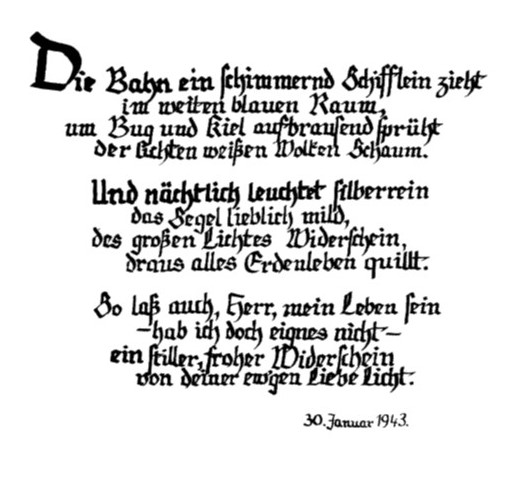 Die Bahn ein schimmernd Schifflein zieht
im weiten blauen Raum,
um Bug und Kiel aufbrausend sprüht
der lichten weißen Wolken Schaum.
Und nächtlich leuchtet silberrein
das Segel lieblich mild,
des großen Lichtes Widerschein,
draus alles Erdenleben quillt.
So laß auch, Herr, mein Leben sein
– hab ich doch eignes nicht –
ein stiller, froher Widerschein
von deiner ew'gen Liebe Licht.
30. Januar 1943.